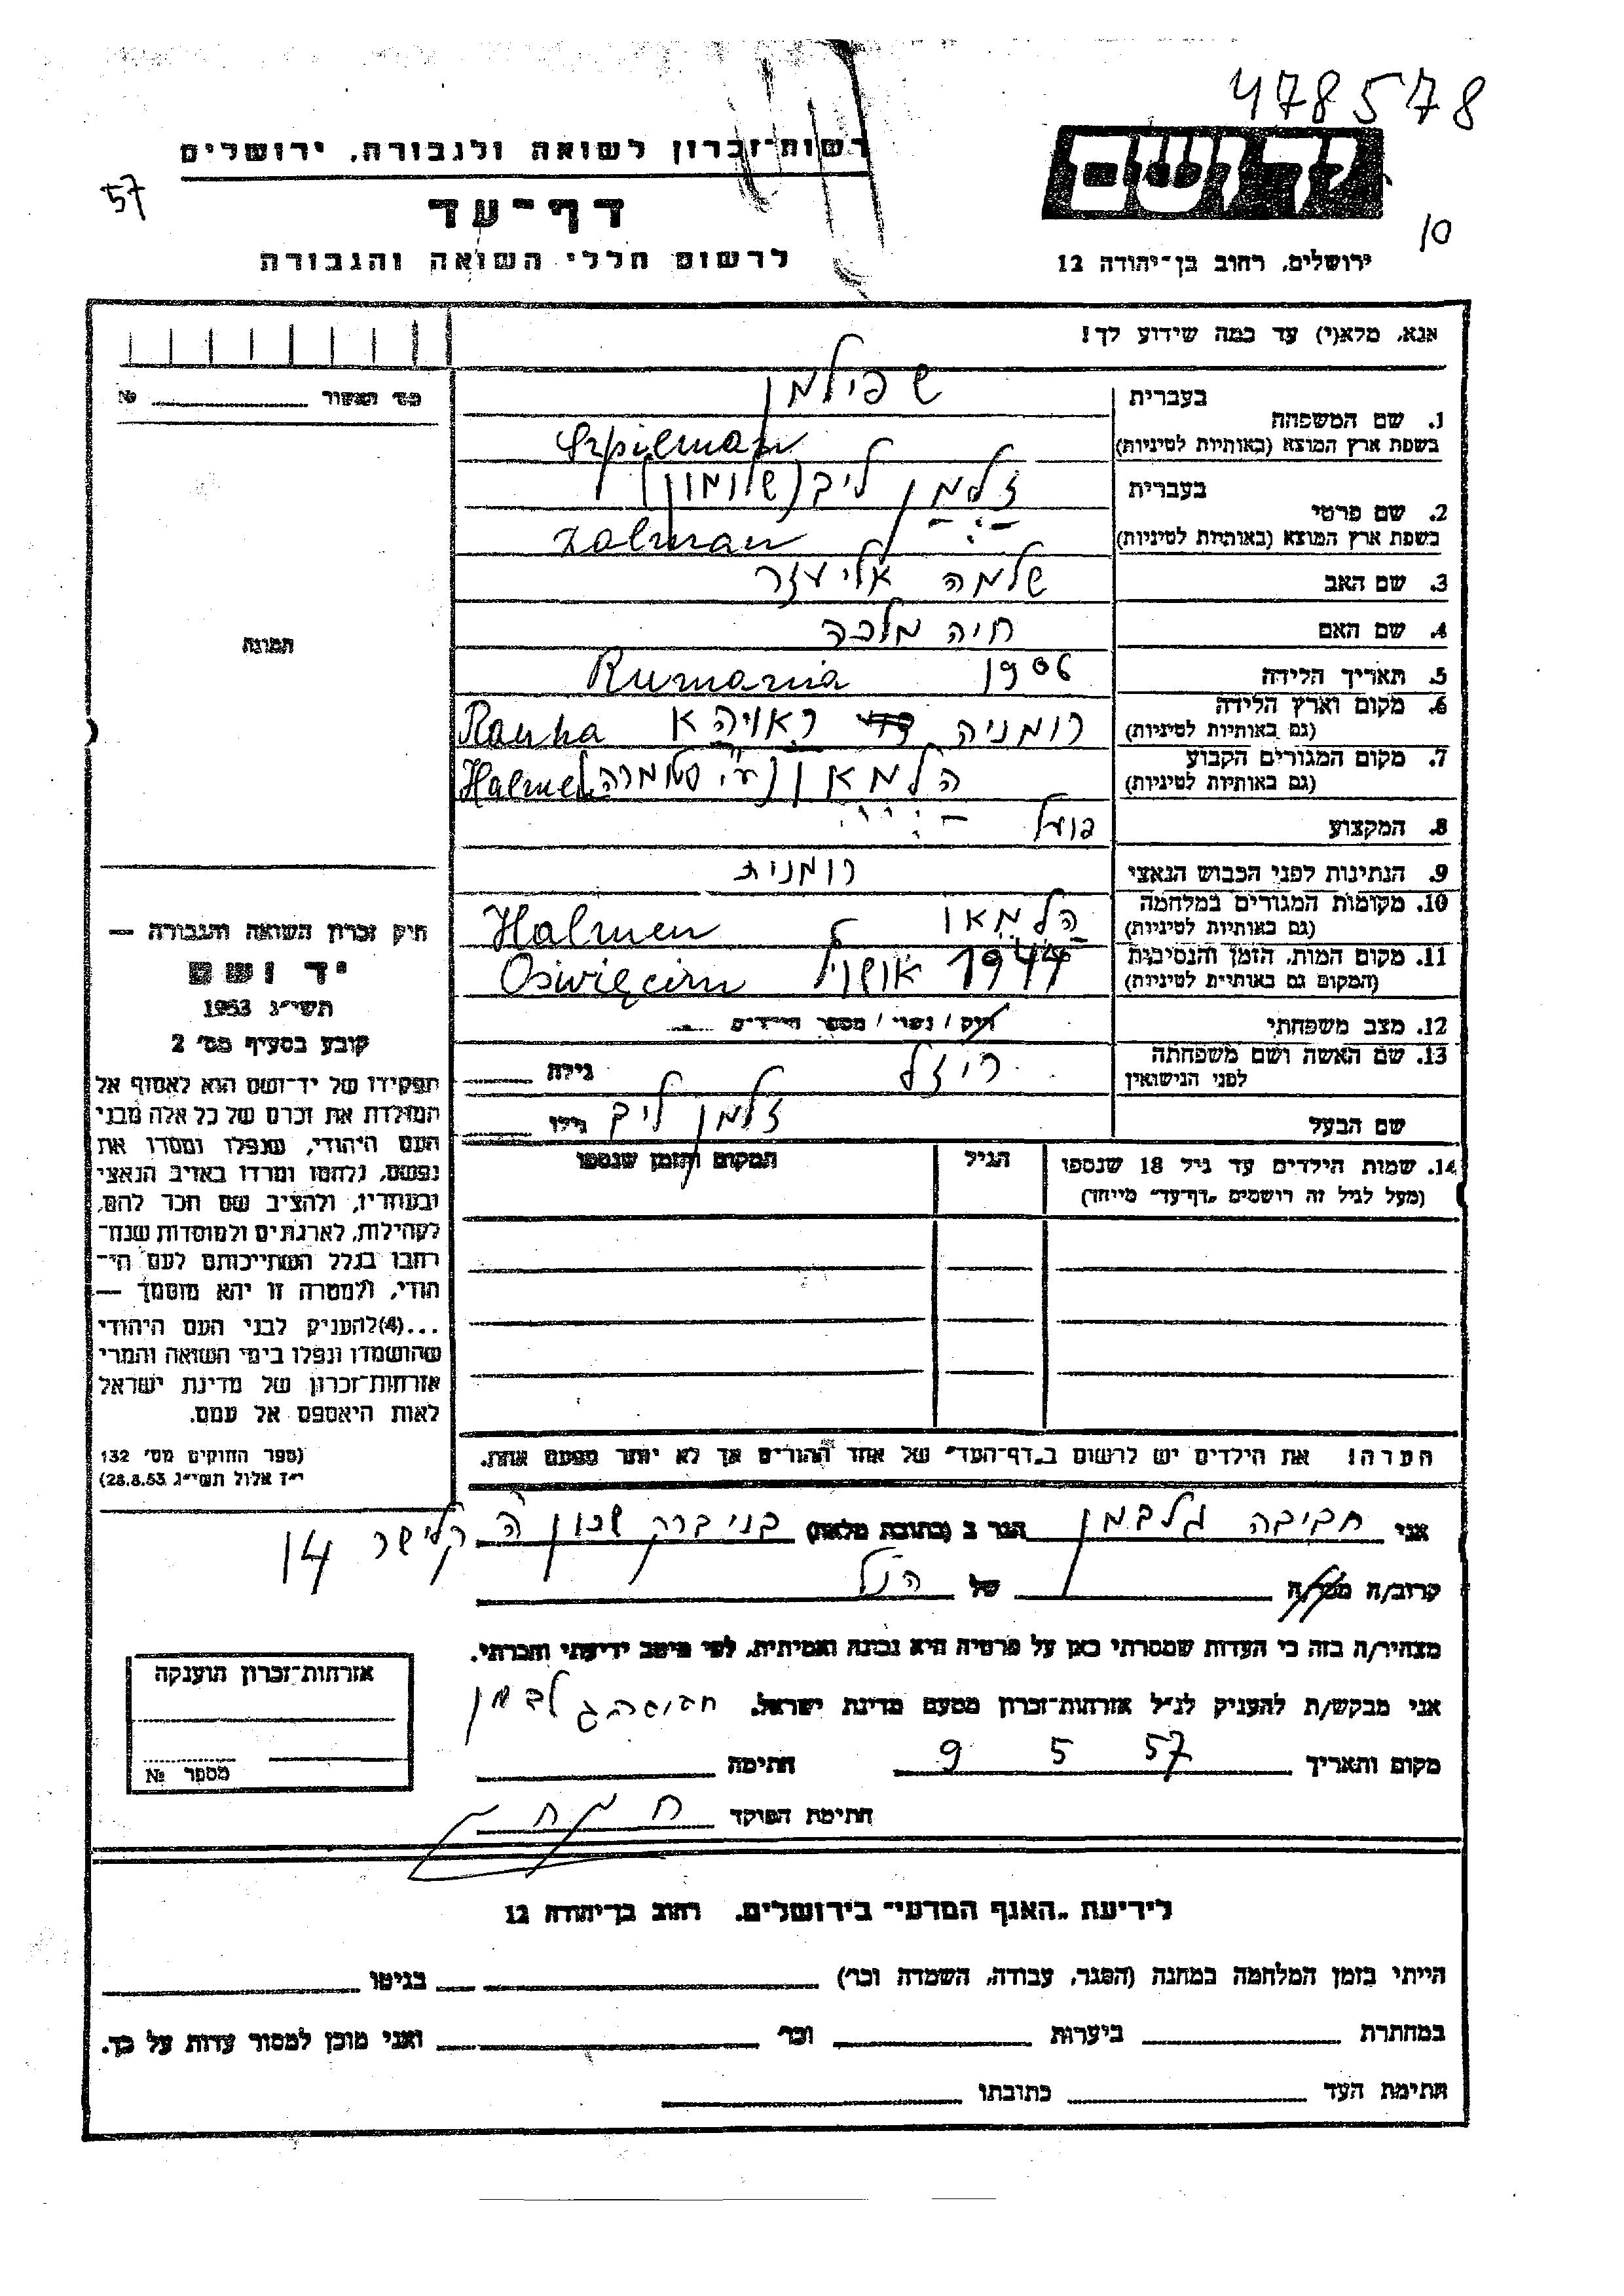 478578
רשות־זכרון לשואה ולגבורה, ירושלים
57
דף־עד
יד ושם
10
לרשום חללי השואה והגבורה
ירושלים, רחוב בן־יהודה 12
אנא, מלא(י) עד כמה שידוע לך!
מס' האשור № 
בעברית שפילמן
1. שם המשפחה
בשפת ארץ המוצא (באותיות לטיניות) Szpilman
בעברית זלמן ליב (שלומון)
2. שם פרטי
בשפת ארץ המוצא (באותיות לטיניות) Zalman
3. שם האב שלמה אליעזר
4. שם האם חיה מלכה
תמונה
5. תאריך הלידה 1906 Rumania
6. מקום וארץ הלידה רומניה
(גם באותיות לטיניות)
7. מקום המגורים הקבוע
(גם באותיות לטיניות)
8. המקצוע פועל
9. הנתינות לפני הכבוש הנאצי רומנית
10. מקומות המגורים במלחמה Halmeu
(גם באותיות לטיניות)
11. מקום המות, הזמן והנסיבות 1944 Oświęcim
(המקום גם באותיות לטיניות)
12. מצב משפחתי רוק / נשוי / מספר הילדים
13. שם האשה ושם משפחתה ריזל גילה
לפני הנישואין
שם הבעל זלמן ליב גילו
14. שמות הילדים עד גיל 18 שנספו הגיל המקום והזמן שנספו
(מעל לגיל זה רושמים „דף־עד" מיוחד)
חוק זכרון השואה והגבורה —
יד ושם
תשי"ג 1953
קובע בסעיף מס' 2
תפקידו של יד־ושם הוא לאסוף אל
המולדת את זכרם של כל אלה מבני
העם היהודי, שנפלו ומסרו את
נפשם, נלחמו ומרדו באויב הנאצי
ובעוזריו, ולהציב שם וזכר להם,
לקהילות, לארגונים ולמוסדות שנח־
רבו בגלל השתייכותם לעם הי־
הודי, ולמטרה זו יהא מוסמך —
...(4)להעניק לבני העם היהודי
שהושמדו ונפלו בימי השואה והמרי
אזרחות־זכרון של מדינת ישראל
לאות היאספם אל עמם.
(ספר החוקים מס' 132
י"ז אלול תשי"ג 28.8.53)
הערה! את הילדים יש לרשום ב„דף־העד" של אחד ההורים אך לא יותר מפעם אחת.
אני חביבה גלבמן הגר ב (כתובת מלאה) בני ברק שכון ה קלישר 14
קרוב/ה מכר/ה של הנ"ל
מצהיר/ה בזה כי העדות שמסרתי כאן על פרטיה היא נכונה ואמיתית, לפי מיטב ידיעתי והכרתי.
אני מבקש/ת להעניק לנ"ל אזרחות־זכרון מטעם מדינת ישראל.
מקום ותאריך 9 5 57 חתימה
חתימת הפוקד
אזרחות־זכרון הוענקה
מספר №
לידיעת „האגף המדעי" בירושלים, רחוב בן־יהודה 12
הייתי בזמן המלחמה במחנה (הסגר, עבודה, השמדה וכו') בגיטו
במחתרת ביערות וכו' ואני מוכן למסור עדות על כך.
חתימת העד כתובתו